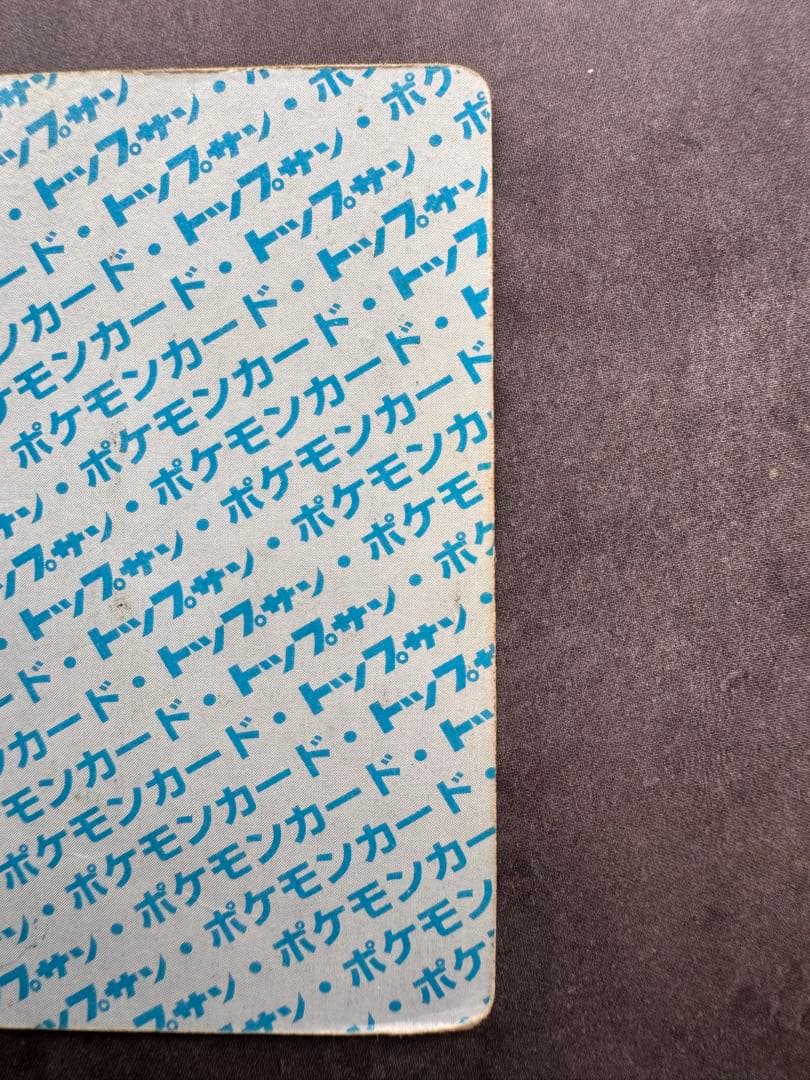 ップサン
・トップサン・
ード・トップサン・ポ
ンカード・トップサン・ポケ
ケモンカード・トップサン・ポ
ポケモンカード・トップサン
サン・ポケモンカード・トップ
プサン・ポケモンカード・ト
・トップサン・ポケモンカード
ード・トップサン・ポケモンカ
ンカード・トップサン・ポケモン
モンカード・トップサン・ポケ
ポケモンカード・トップサン・
ン・ポケモンカード・トップ
プサン・ポケモンカード・トッ
プサン・ポケモンカード・
プサン・ポケモンカー
サン・ポケモン
・ポケ